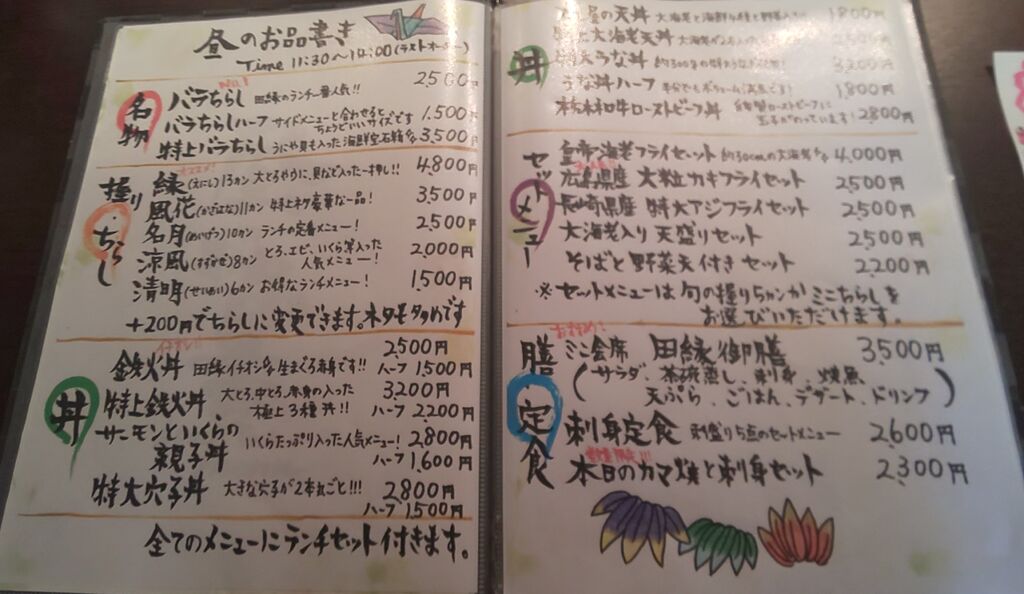 昼のお品書き
Time 11:30〜14:00(ラストオーダー)
名物
No.1
バラちらし 田縁のランチ一番人気!! 2500円
バラちらしハーフ サイドメニューと合わせるとちょうどいいサイズです 1,500円
特上バラちらし うにや貝も入った海鮮宝石箱 3,500円
握り・ちらし
オススメ!
縁(えにし)13カン 大とろやうに、貝など入った一押し!! 4,800円
風花(かざはな)11カン 特上ネタ豪華な一品! 3500円
名月(めいげつ)10カン ランチの定番メニュー! 2500円
涼風(すずかぜ)8カン とろ、エビ、いくら等入った人気メニュー! 2,000円
清明(せいめい)6カン お得なランチメニュー! 1500円
+200円でちらしに変更できます。ネタモタクめです
丼
イチオシ!!
鉄火丼 田縁イチオシの生まぐろ赤身です!! 2500円
ハーフ 1500円
特上鉄火丼 大とろ、中とろ、赤身の入った極上3種丼!! 3,200円
ハーフ 2,200円
サーモンといくらの親子丼 いくらたっぷり入った人気メニュー! 2,800円
ハーフ 1,600円
特大穴子丼 大きな穴子が2本丸ごと!!! 2800円
ハーフ 1500円
全てのメニューにランチセット付きます。
丼
屋の天丼 大海老と海鮮 1800円
大海老天丼 大海老が2本入った
特大うな丼 約300gの 3200円
うな丼ハーフ 半分でもボリューム満点です! 1,800円
栃木和牛ローストビーフ丼 自家製ローストビーフに玉子がのっています! 2800円
セットメニュー
皇帝海老フライセット 約30cmの大海老 4,000円
広島県産 大粒カキフライセット 2500円
長崎県産 特大アジフライセット 2500円
大海老入り 天盛りセット 2500円
そばと野菜天付きセット 2200円
※セットメニューは旬の握り5カンかミニちらしをお選びいただけます。
膳・定食
おすすめ!
ミニ会席 田縁御膳 3500円
(サラダ、茶碗蒸し、刺身、焼魚
天ぷら、ごはん、デザート、ドリンク)
刺身定食 刺盛り5点のセットメニュー 2600円
数量限定!!!
本日のカマ焼と刺身セット 2,300円